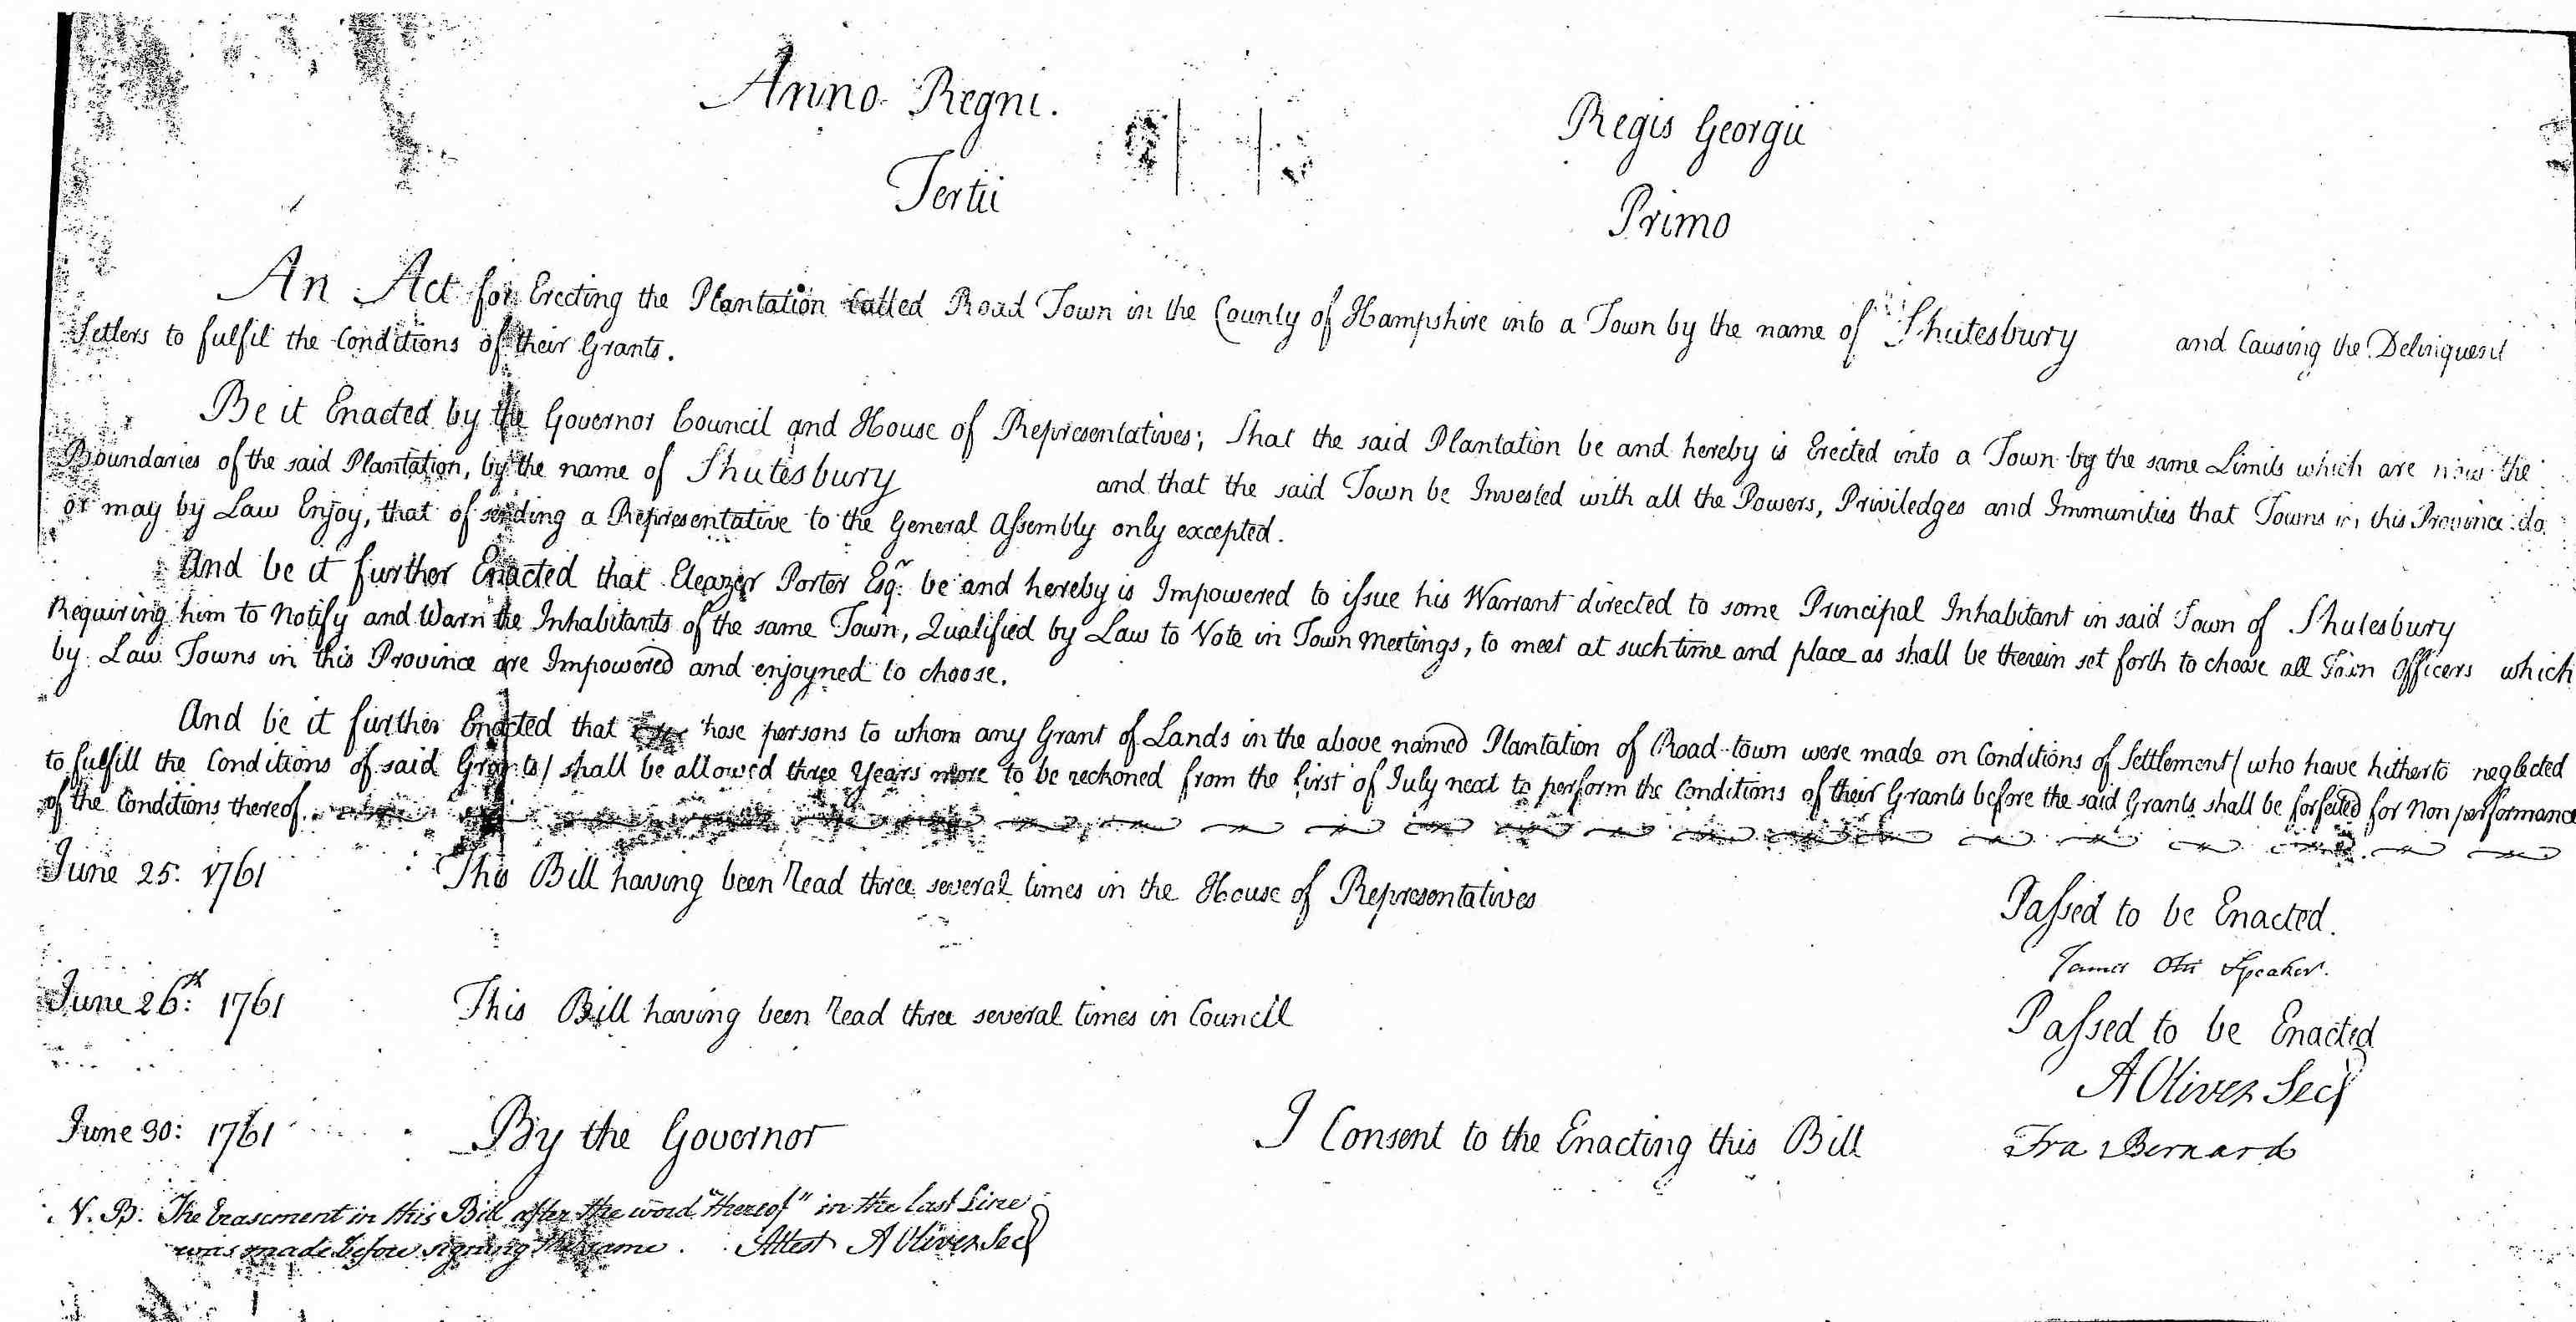 Anno Regni. Regis Georgii
Tertii Primo
An Act for Erecting the Plantation Called Road Town in the County of Hampshire into a Town by the name of Shutesbury and Causing the Delinquent
Setlers to fulfil the Conditions of their Grants.
Be it Enacted by the Governor Council and House of Representatives; That the said Plantation be and hereby is Erected into a Town by the same Limits which are now the
Boundaries of the said Plantation, by the name of Shutesbury and that the said Town be Invested with all the Powers, Priviledges and Immunities that Towns in this Province do
or may by Law Enjoy, that of sending a Representative to the General Assembly only excepted.
And be it further Enacted that Eleazer Porter Esqr. be and hereby is Impowered to issue his Warrant directed to some Principal Inhabitant in said Town of Shutesbury
Requiring him to Notify and Warn the Inhabitants of the same Town, Qualified by Law to Vote in Town Meetings, to meet at such time and place as shall be therein set forth to choose all Town Officers which
by Law Towns in this Province are Impowered and enjoyned to choose.
And be it further Enacted that those persons to whom any Grant of Lands in the above named Plantation of Road-town were made on Conditions of Settlement (who have hitherto neglected
to fulfill the Conditions of said Grants) shall be allowed three Years more to be reckoned from the first of July next to perform the Conditions of their Grants before the said Grants shall be forfeited for Non performance
of the Conditions thereof.
June 25: 1761 This Bill having been read three several times in the House of Representatives
Passed to be Enacted.
James Otis Speaker.
June 26th: 1761 This Bill having been read three several times in Council
Passed to be Enacted
A Oliver Secy
June 30: 1761 By the Governor I Consent to the Enacting this Bill Fra Bernard
N. B. The Erasement in this Bill after the word "thereof" in the last Line
was made before signing the same. Attest A Oliver Secy